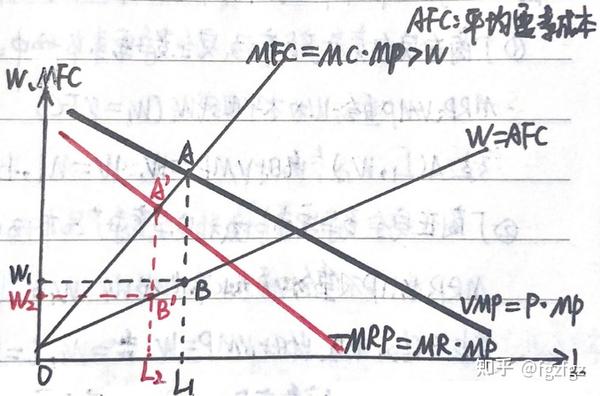 AFC:平均要素成本
W、MFC
MFC=MC·MP>W
W=AFC
A
A'
W1
W2
B
B'
VMP=P·MP
MRP=MR·MP
O
L2
L1
L
知乎 @fgzfgz